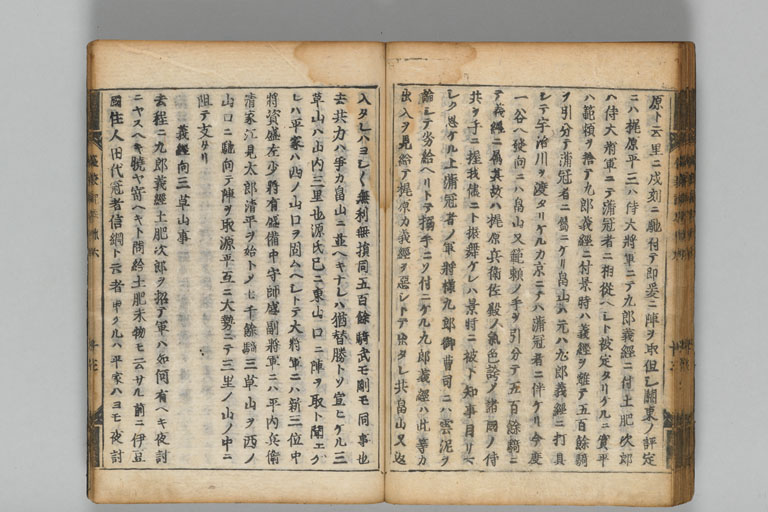 原ト云里ニ戌刻ニ馳付テ即爰ニ陣ヲ取但シ關東ノ評定
ニハ梶原平三ハ侍大將軍ニテ九郎義經ニ付土肥次郎
ハ侍大將軍ニテ蒲冠者ニ相從ヘシト被定タリケルニ實平
ハ範頼ヲ捨テ九郎義經ニ付景時ハ義經ヲ離テ五百餘騎
ヲ引分テ蒲冠者ニ屬ニケリ畠山ハ元ハ九郎義經ニ打具
シテ宇治川ヲ渡タリケルカ京ニテハ蒲冠者ニ伴ケリ今度
一谷ヘ發向ニハ畠山又範頼ノ手ヲ引分テ五百餘騎ニ
テ義經ニ屬其故ハ梶原兵衛佐殿ノ氣色誇ノ諸國ノ侍
共ヲ手ニ握我儘ニト振舞ケレハ景時ニ被下知事目リヘ
シク思ケル上蒲冠者ノ軍將様九郎御曹司ニハ雲泥ヲ
論シテ劣給ヘリトテ搦手ニソ付ニケル九郎義經ハ此等カ
出入ヲ見給テ梶原カ義經ヲ惡シトテ除タレ共畠山又
入タレハヨシ〳〵無利無損同五百餘騎武モ剛モ同事也
去共力ハ手カ畠山ニ並ヘキナレハ猶替勝トソ宣ヒケル三
草山ハ山内三里也源氏已ニ東山口ニ陣ヲ取ト聞エケ
レハ平家ハ西ノ山口ヲ固ムヘシトテ大將軍ニハ新三位中
將資盛左少將有盛備中守師盛副將軍ニハ平内兵衛
清家江見太郎清平ヲ始トメ七千餘騎三草山ヲ西ノ
山口ニ馳向テ陣ヲ取源平互ニ大勢ニテ三里ノ山ノ中ニ
阻テ支タリ
義經向三草山事
去程ニ九郎義經土肥次郎ヲ招テ軍ハ如何有ヘキ夜討
ニヤスヘキ曉ヤ寄ヘキト問給土肥未物モ云サル前ニ伊豆
國住人田代冠者信綱ト云者申ケルハ平家ハヨモ夜討